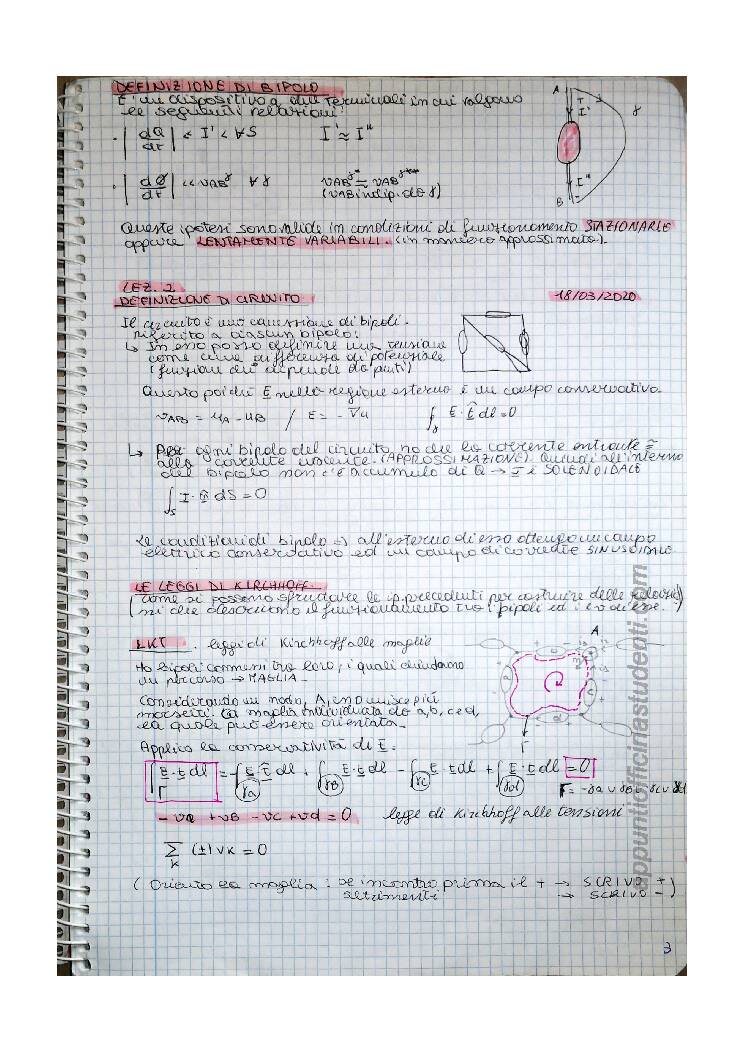 DEFINIZIONE DI BIPOLO
È un dispositivo a due terminali in cui valgono
le seguenti relazioni:
· |dQ/dt| << I' < ∀S I' ≈ I"
· |dΦ/dt| << vAB^γ ∀γ vAB^γ* ≈ vAB^γ**
(vAB indip. da γ)
A
I'
γ
I"
B
Queste ipotesi sono valide in condizioni di funzionamento STAZIONARIE
oppure LENTAMENTE VARIABILI. (in maniera approssimata).
LEZ. 2
DEFINIZIONE DI CIRCUITO 18/03/2020
Il circuito è una connessione di bipoli.
Riferito a ciascun bipolo:
↳ In esso posso definire una tensione
come una differenza di potenziale
(funzione che dipende da punti)
Questo poiché E nella regione esterna è un campo conservativo
vAB = uA - uB / E = -∇u ∫γ E · t̂ dl = 0
↳ Per ogni bipolo del circuito ho che la corrente entrante ≅
alla corrente uscente. (APPROSSIMAZIONE) Quindi all'interno
del bipolo non c'è accumulo di Q → I è SOLENOIDALE
∫S I · n̂ dS = 0
Le condizioni di bipolo ⇒ all'esterno di esso ottengo un campo
elettrico conservativo ed un campo di corrente SINUSOIDALE.
LE LEGGI DI KIRCHHOFF.
(come si possono sfruttare le ip. precedenti per costruire delle relazio
ni che descrivono il funzionamento tra i bipoli ed i e v di esse. ?)
LKT . leggi di Kirchhoff alle maglie
Ho bipoli connessi tra loro, i quali chiudono
un percorso → MAGLIA.
Considerando un nodo, A, esso unisce più
morsetti. La maglia individuata da a, b, c e d,
la quale può essere orientata.
A
Γ
Applico la conservatività di E.
∫Γ E · t dl = -∫γa E · t̂ dl + ∫γB E · t dl - ∫γc E · t dl + ∫γd E · t dl = 0
Γ = -γa ∪ γb ∪ -γc ∪ γd
- va + vB - vc + vd = 0 legge di Kirchhoff alle tensioni
∑k (±) vk = 0
(Oriento la maglia : se incontro prima il + → SCRIVO +
altrimenti → SCRIVO -)
3
appuntiofficinastudenti.com